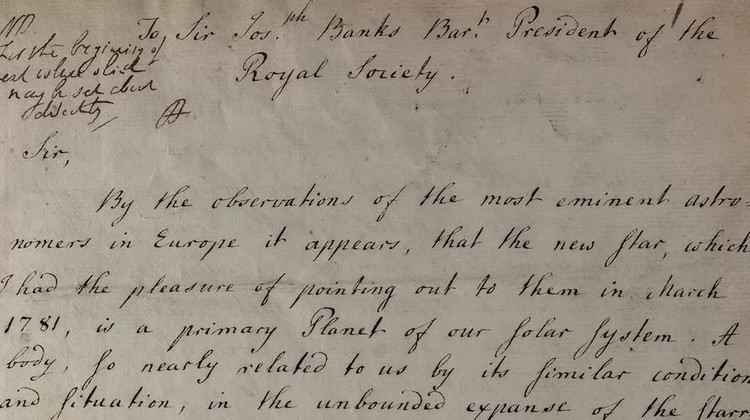 To Sir Jos.ph Banks Bar.t President of the
Royal Society.
the beginning of
may be set about
directly
Sir,
By the observations of the most eminent astro-
nomers in Europe it appears, that the new star, which
I had the pleasure of pointing out to them in March
1781, is a primary Planet of our Solar System. A
body, so nearly related to us by its similar condition
and situation, in the unbounded expanse of the starry